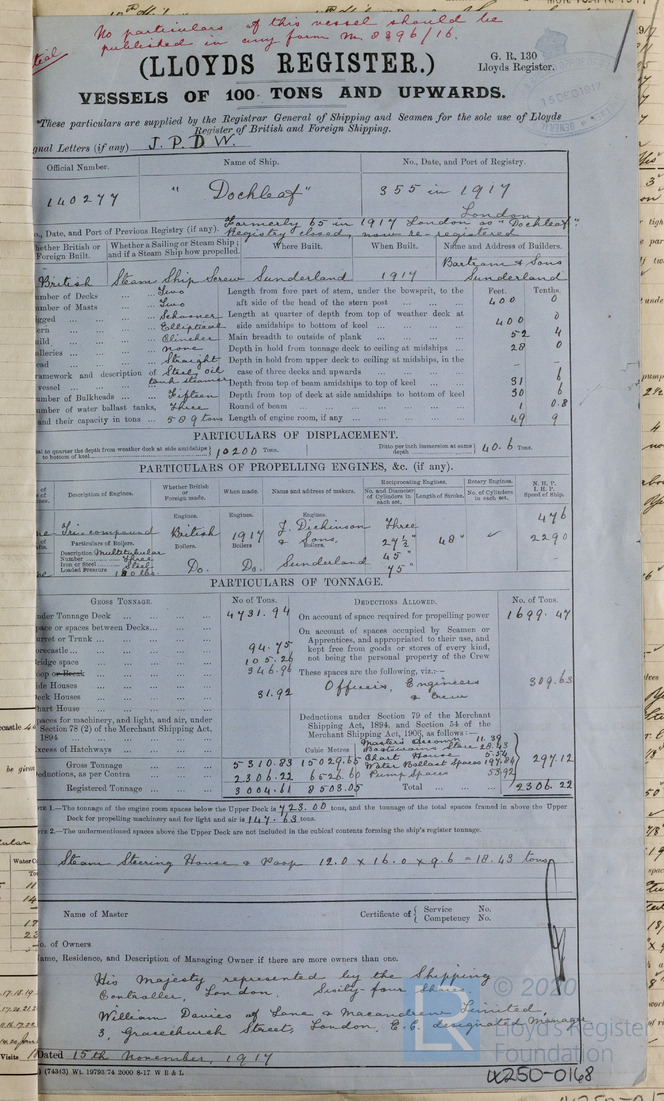 No particulars of this vessel should be
published in any form M 8396/16.
(LLOYDS REGISTER.)
G. R. 130
Lloyds Register.
VESSELS OF 100 TONS AND UPWARDS.
15 DEC 1917
*These particulars are supplied by the Registrar General of Shipping and Seamen for the sole use of Lloyds
Register of British and Foreign Shipping.
gnal Letters (if any) J. P. D. W.
Official Number. Name of Ship. No., Date, and Port of Registry.
140277 "Dockleaf" 355 in 1917
London
o., Date, and Port of Previous Registry (if any). Formerly 65 in 1917 London as "Dockleaf".
Registry closed, now re-registered
hether British or Foreign Built. Whether a Sailing or Steam Ship; and if a Steam Ship how propelled. Where Built. When Built. Name and Address of Builders.
British Steam Ship Screw Sunderland 1917 Bartram & Sons
Sunderland
umber of Decks Two Length from fore part of stem, under the bowsprit, to the Feet. Tenths.
umber of Masts Two aft side of the head of the stern post 400 0
gged Schooner Length at quarter of depth from top of weather deck at
ern Elliptical side amidships to bottom of keel 400 0
uild Clincher Main breadth to outside of plank 52 4
alleries none Depth in hold from tonnage deck to ceiling at midships 28 0
ead Straight Depth in hold from upper deck to ceiling at midships, in the
ramework and description of Steel oil case of three decks and upwards - -
vessel tank steamer Depth from top of beam amidships to top of keel 31 6
umber of Bulkheads Fifteen Depth from top of deck at side amidships to bottom of keel 30 6
umber of water ballast tanks, Three Round of beam 1 0.8
and their capacity in tons 589 tons Length of engine room, if any 49 9
PARTICULARS OF DISPLACEMENT.
al to quarter the depth from weather deck at side amidships to bottom of keel 10200 Tons. Ditto per inch immersion at same depth 40.6 Tons.
PARTICULARS OF PROPELLING ENGINES, &c. (if any).
Description of Engines. Whether British or Foreign made. When made. Name and address of makers. Reciprocating Engines. Rotary Engines. N. H. P.
I. H. P.
Speed of Ship.
No. and Diameter of Cylinders in each set. Length of Stroke. No. of Cylinders in each set.
Engines. Engines. Engines. 476
Tri-compound British 1917 J. Dickinson Three
Particulars of Boilers. & Sons, 27½" 48" 2290
Description Multitubular Boilers. Boilers Boilers. 45"
Number Three
Iron or Steel Steel Do. Do. Sunderland 75" -
Loaded Pressure 180 lbs.
PARTICULARS OF TONNAGE.
GROSS TONNAGE. No of Tons. DEDUCTIONS ALLOWED. No. of Tons.
nder Tonnage Deck 4731.94 On account of space required for propelling power 1699.47
pace or spaces between Decks On account of spaces occupied by Seamen or
urret or Trunk Apprentices, and appropriated to their use, and
orecastle 94.75 kept free from goods or stores of every kind,
ridge space 105.26 not being the personal property of the Crew
oop or Break 346.96 These spaces are the following, viz.:—
ide Houses Officers, Engineers 309.63
eck Houses 31.92 & Crew
hart House
paces for machinery, and light, and air, under Deductions under Section 79 of the Merchant
Section 78 (2) of the Merchant Shipping Act, Shipping Act, 1894, and Section 54 of the
1894 Merchant Shipping Act, 1906, as follows:—
xcess of Hatchways Cubic Metres Master's accomn 11.39
Boatswains Store 28.43
Chart House 5.56
Gross Tonnage 5310.83 15029.65 Water Ballast Spaces 197.84 297.12
eductions, as per Contra 2306.22 6526.60 Pump Spaces 53.92
Registered Tonnage 3004.61 8503.05 Total 2306.22
OTE 1.—The tonnage of the engine room spaces below the Upper Deck is 723.00 tons, and the tonnage of the total spaces framed in above the Upper
Deck for propelling machinery and for light and air is 147.63 tons.
OTE 2.—The undermentioned spaces above the Upper Deck are not included in the cubical contents forming the ship's register tonnage.
Steam Steering House & Poop 12.0 x 16.0 x 9.6 = 18.43 tons
Name of Master Certificate of { Service No.
Competency No.
o. of Owners
ame, Residence, and Description of Managing Owner if there are more owners than one.
His Majesty represented by the Shipping
Controller, London. Sixty-four shares
William Davies of Lane & Macandrew Limited,
3, Gracechurch Street, London. E.C. designated Manager
Dated 15th November, 1917
(74343) Wt. 19793/74 2000 8-17 W B & L
LR © 2020
Lloyd's Register
Foundation
W250-0168